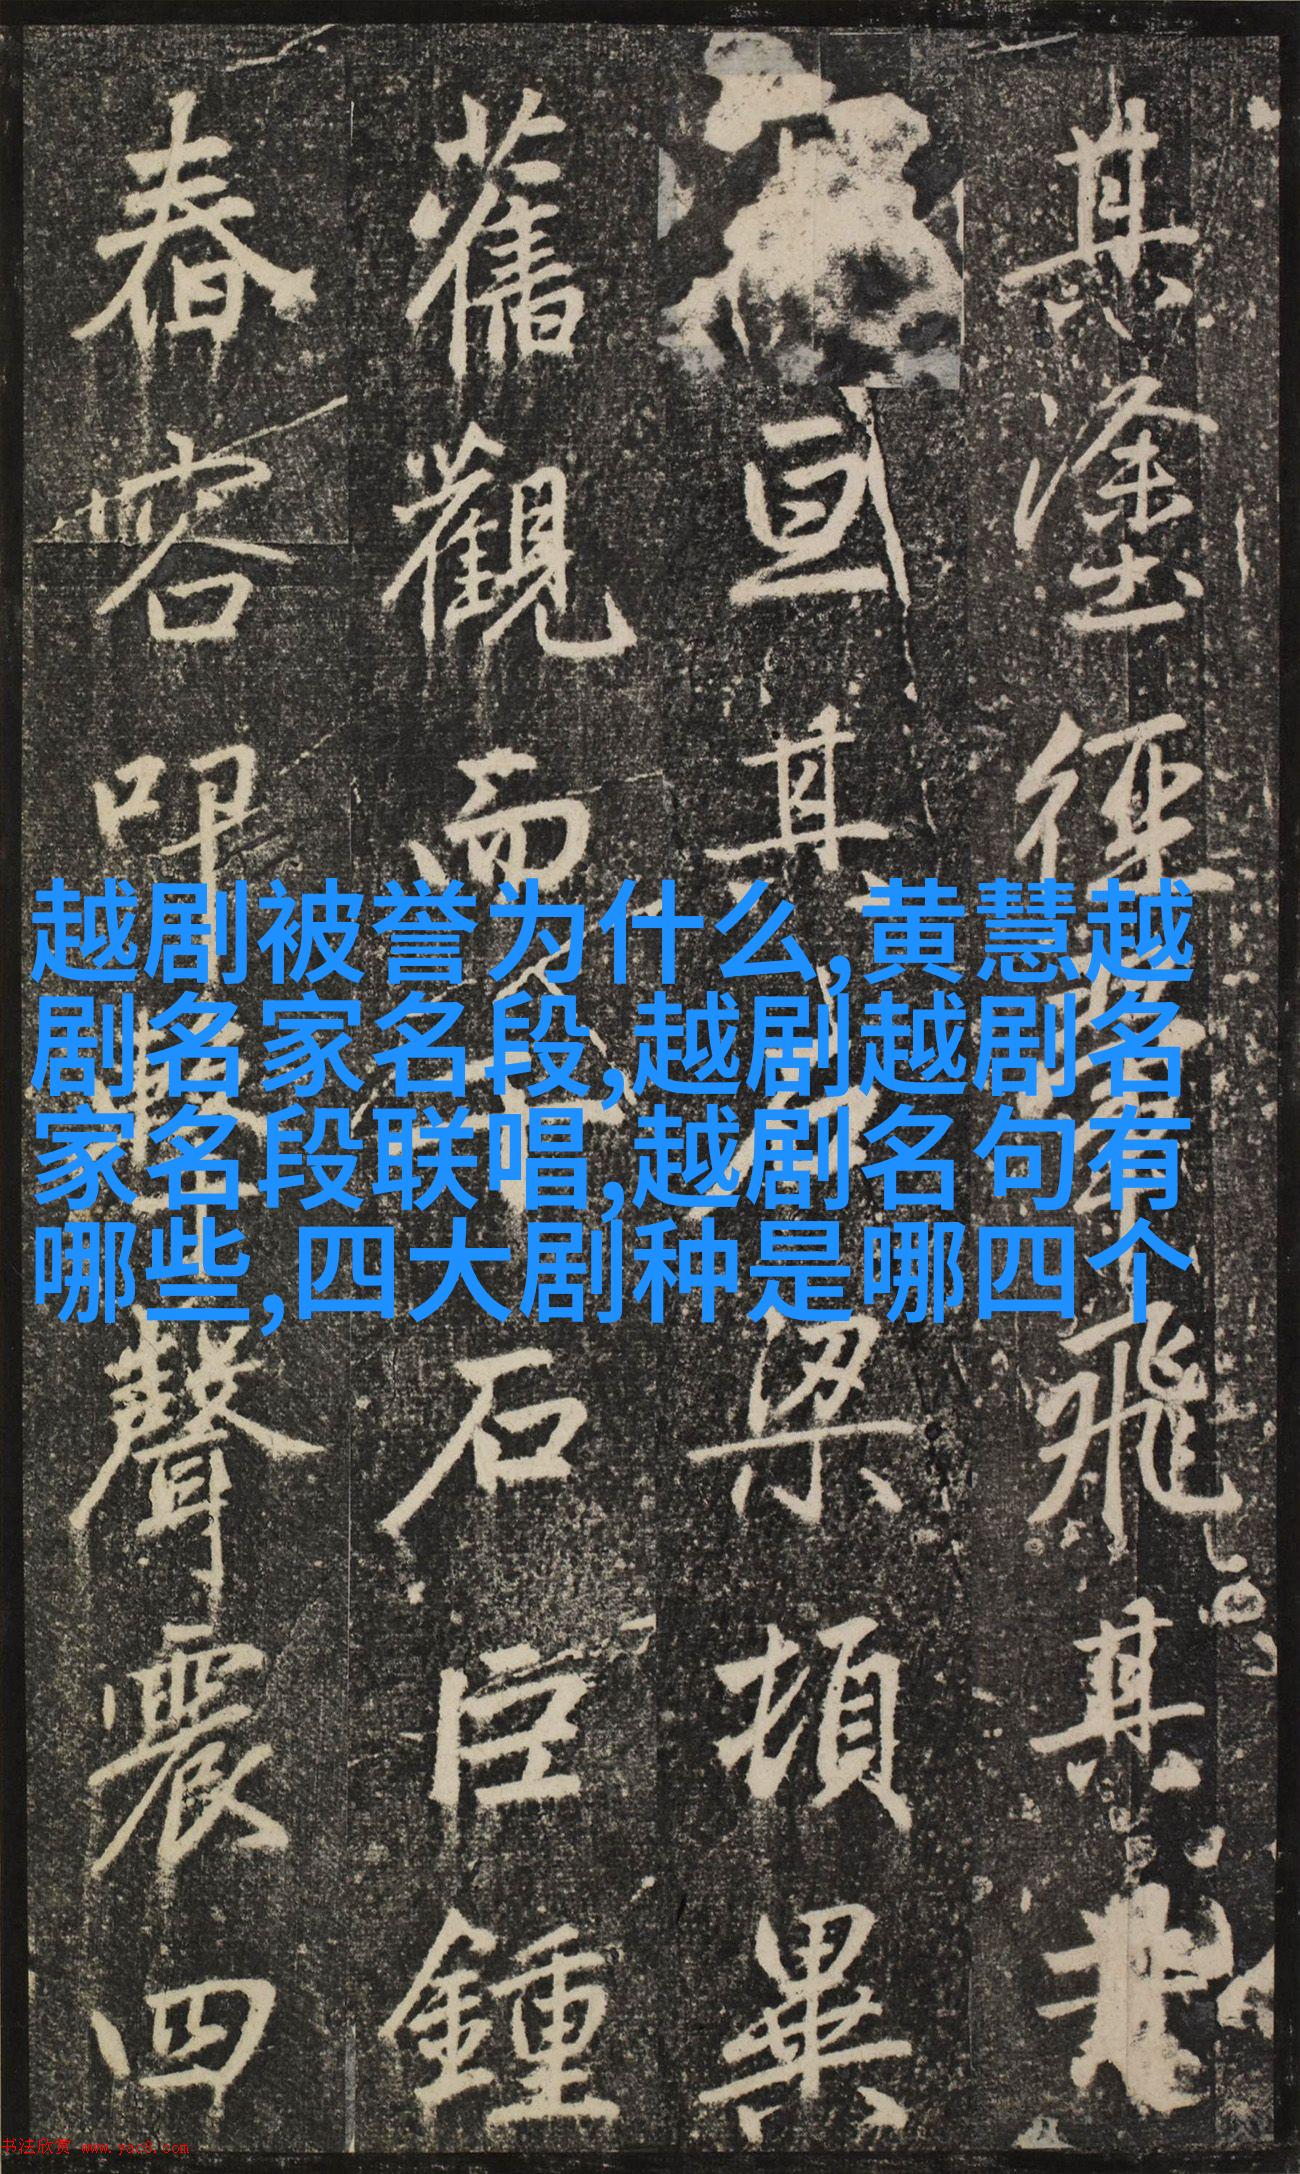 越剧被誉为什么,黄慧越
剧名家名段,越剧越剧名
家名段联唱,越剧名句有
哪些,四大剧种是哪四个
其塗徑飛其
亘其梁頓異
舊觀而石巨鍾
春容叩聲震四
书法欣赏 www.yac8.com